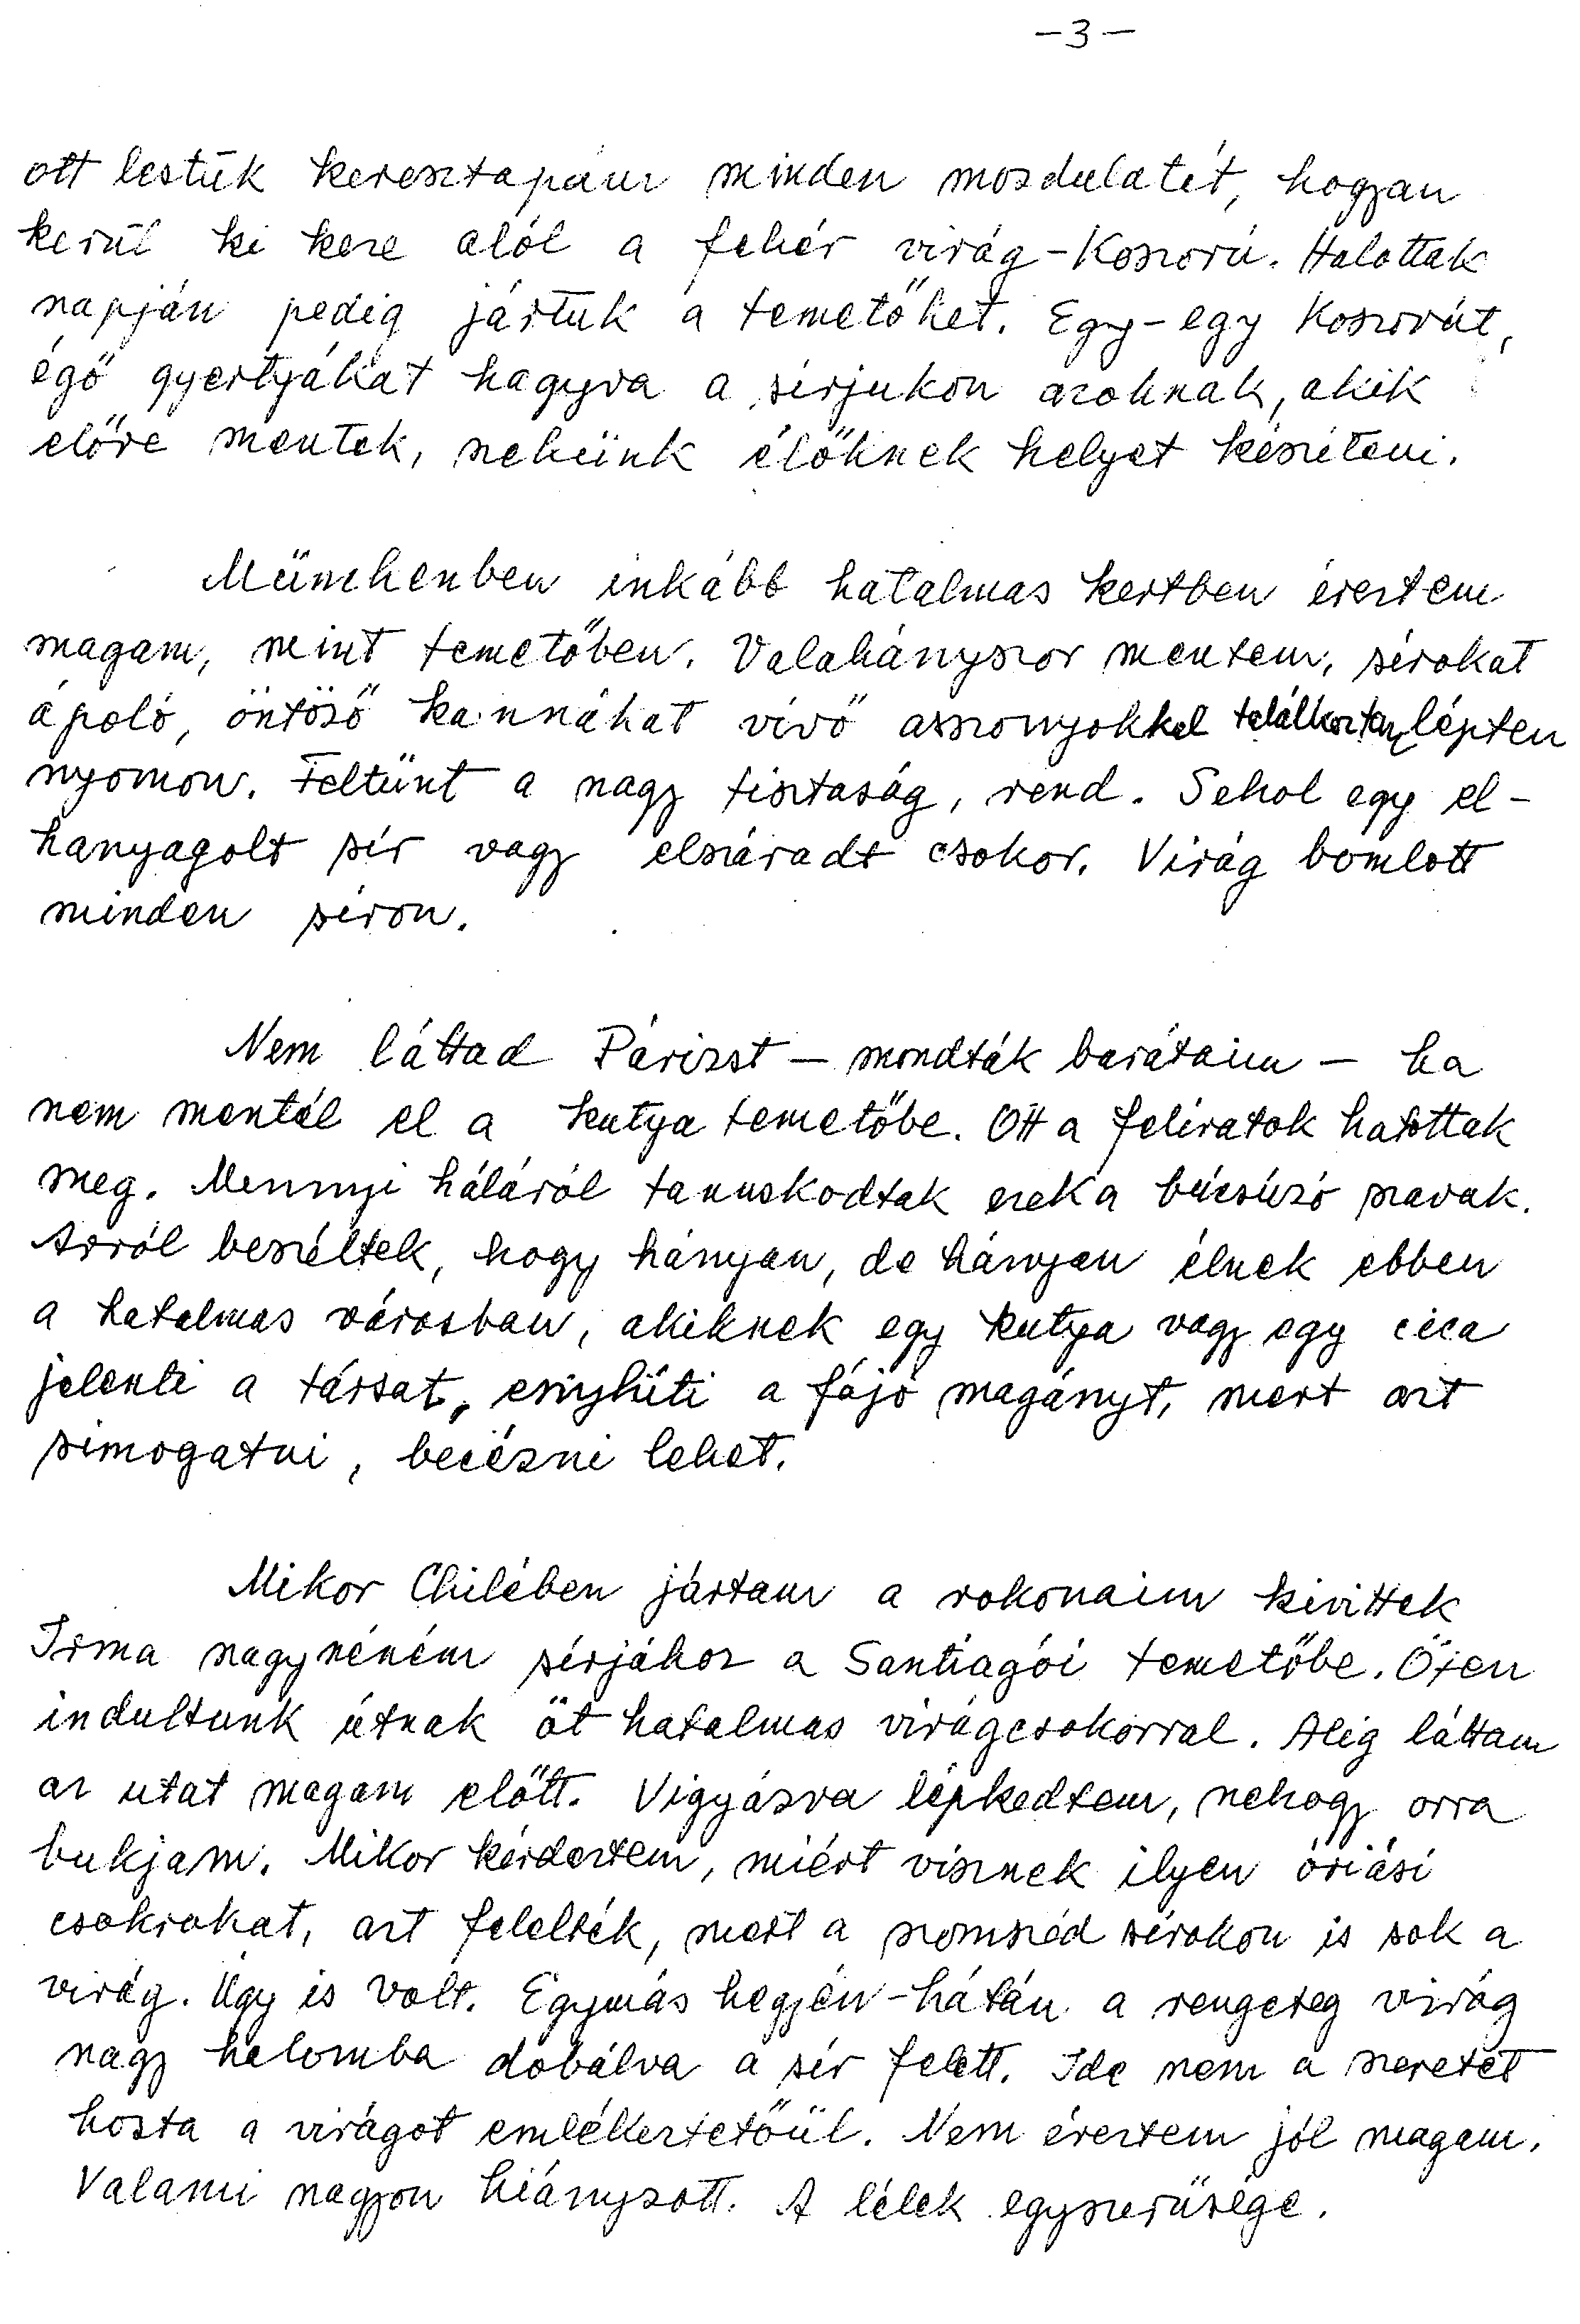 -3-
ott lestük keresztapám minden mozdulatát, hogyan
kerül ki keze alól a fehér virág-koszorú. Halottak
napján pedig jártuk a temetőket. Egy-egy koszorút,
égő gyertyákat hagyva a sírjukon azoknak, akik
előre mentek, nekünk élőknek helyet készíteni.
Münchenben inkább hatalmas kertben éreztem
magam, mint temetőben. Valahányszor mentem, sírokat
ápoló, öntöző kannákat vivő asszonyokkal találkoztam lépten
nyomon. Feltünt a nagy tisztaság, rend. Sehol egy el-
hanyagolt sír vagy elszáradt csokor. Virág bomlott
minden síron.
Nem láttad Párizst – mondták barátaim – ha
nem mentél el a kutya temetőbe. Ott a feliratok hatottak
meg. Mennyi háláról tanuskodtak ezek a búcsúzó szavak.
Arról beszéltek, hogy hányan, de hányan élnek ebben
a hatalmas városban, akiknek egy kutya vagy egy cica
jelenti a társat, enyhíti a fájó magányt, mert azt
simogatni, becézni lehet.
Mikor Chilében jártam a rokonaim kivittek
Irma nagynéném sírjához a Santiagói temetőbe. Öten
indultunk útnak öt hatalmas virágcsokorral. Alig láttam
az utat magam előtt. Vigyázva lépkedtem, nehogy orra
bukjam. Mikor kérdeztem, miért visznek ilyen óriási
csokrokat, azt felelték, mert a szomszéd sírokon is sok a
virág. Úgy is volt. Egymás hegyén-hátán a rengeteg virág
nagy halomba dobálva a sír felett. Ide nem a szeretet
hozta a virágot emlékeztetőül. Nem éreztem jól magam.
Valami nagyon hiányzott. A lélek egyszerűsége.